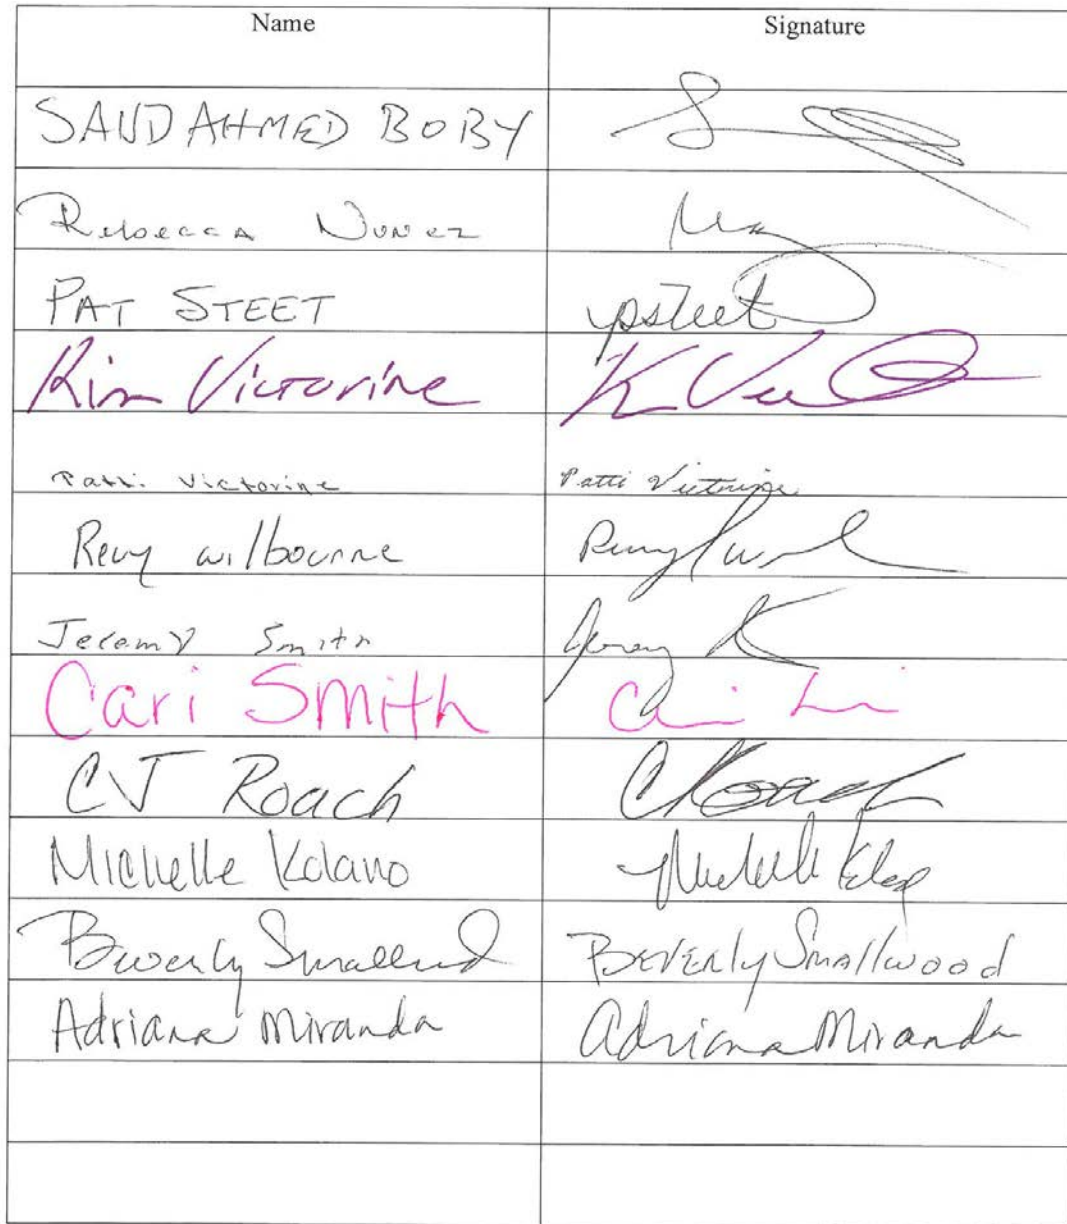 Name Signature
SAUD AHMED BOBY
Rebecca Nunez
PAT STEET psteet
Kim Victorine K
Patti Victorine Patti Victorine
wilbourne
Jeremy Smith Jeremy
Cari Smith
CJ Roach CRoach
Michelle Kolano Michelle
Beverly Smallwood BEVERly Smallwood
Adriana Miranda Adriana Miranda